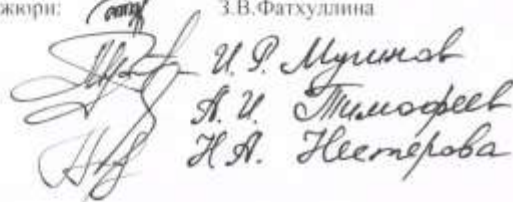 жюри: З.В.Фатхуллина
И. Р. Мугинов
А. И. Тимофеев
Н. А. Нестерова